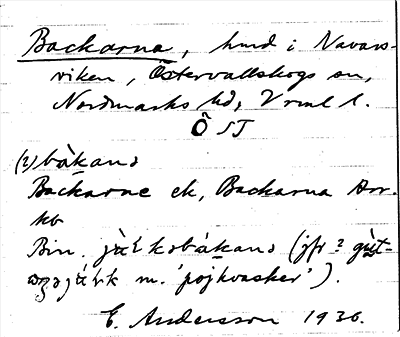 Backarna, hmd i Navars-
viken, Östervallskogs sn,
Nordmarks hd, Vrml l.
Ö ST
(2) bàkanɔ
Backarne ek, Backarna Arr.
kb
Bin. bàkanɔ (jfr ?
m. 'pojkvasker').
E. Andersson 1930.